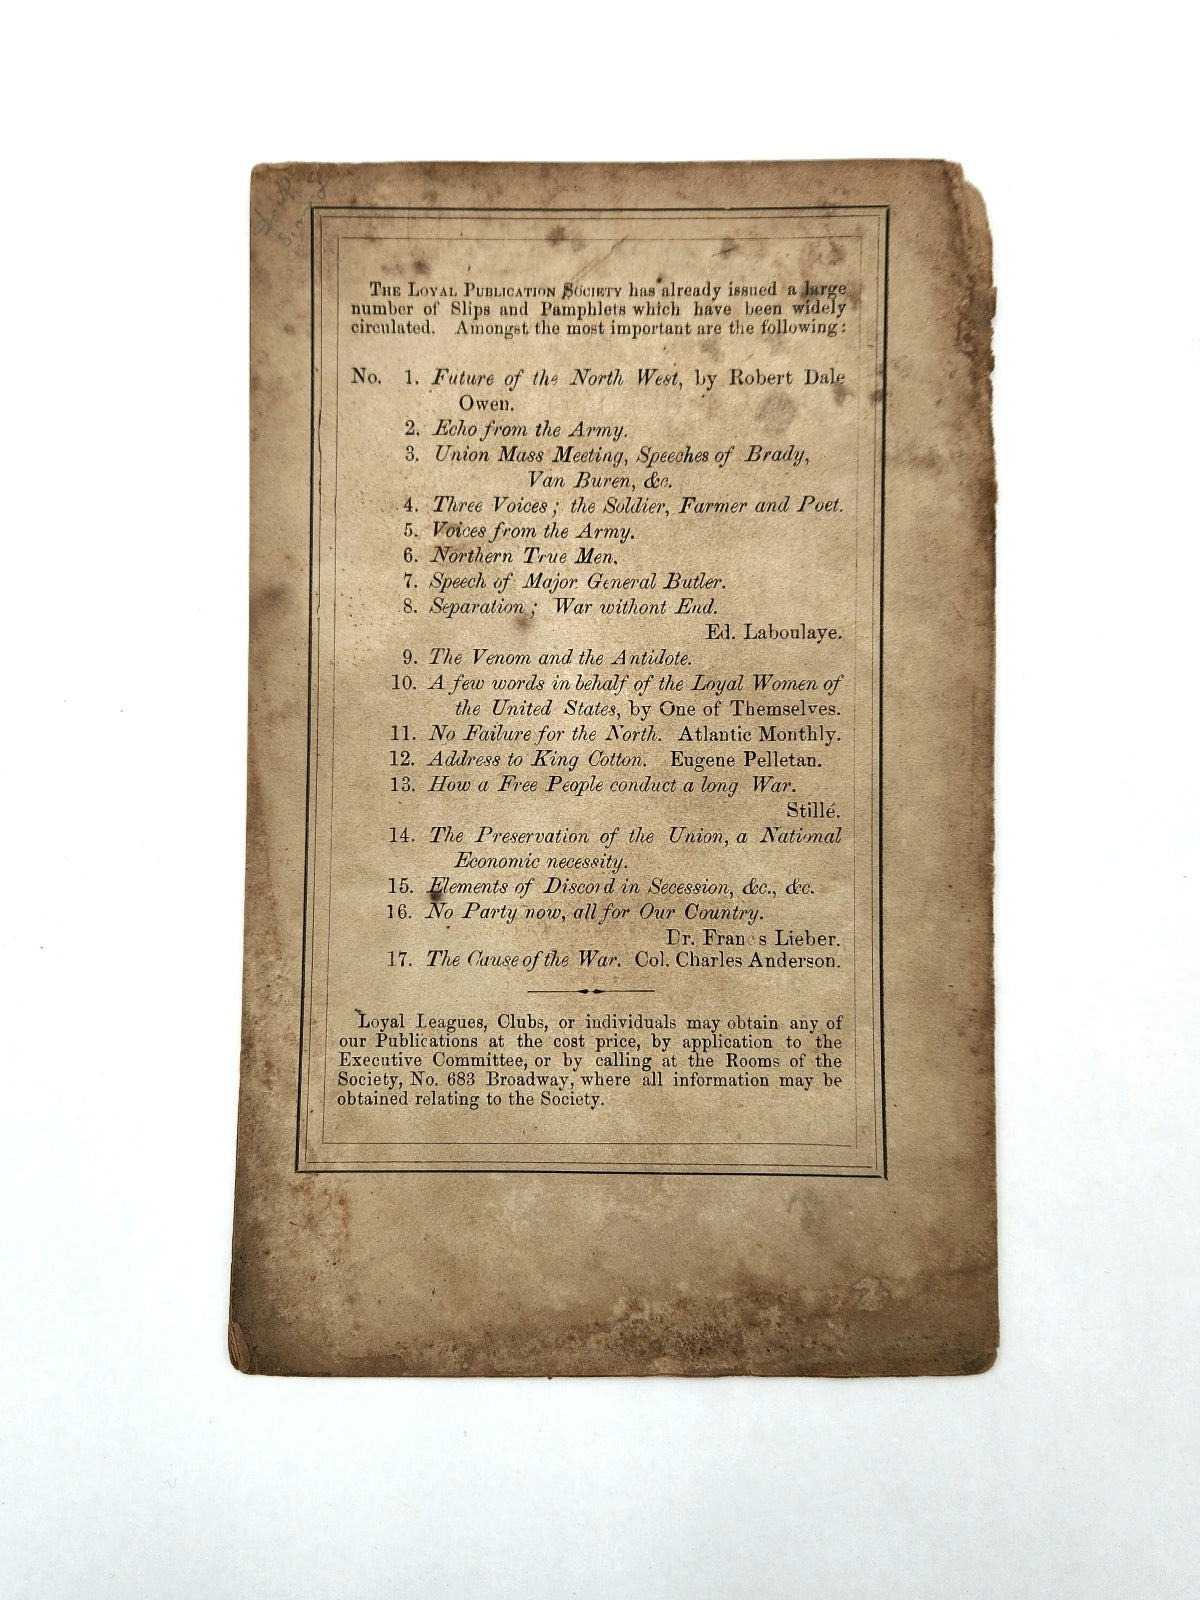 The Loyal Publication Society has already issued a large
number of Slips and Pamphlets which have been widely
circulated. Amongst the most important are the following:
No. 1. Future of the North West, by Robert Dale
Owen.
2. Echo from the Army.
3. Union Mass Meeting, Speeches of Brady,
Van Buren, &c.
4. Three Voices; the Soldier, Farmer and Poet.
5. Voices from the Army.
6. Northern True Men.
7. Speech of Major General Butler.
8. Separation; War withont End.
Ed. Laboulaye.
9. The Venom and the Antidote.
10. A few words in behalf of the Loyal Women of
the United States, by One of Themselves.
11. No Failure for the North. Atlantic Monthly.
12. Address to King Cotton. Eugene Pelletan.
13. How a Free People conduct a long War.
Stillé.
14. The Preservation of the Union, a National
Economic necessity.
15. Elements of Discord in Secession, &c., &c.
16. No Party now, all for Our Country.
Dr. Francis Lieber.
17. The Cause of the War. Col. Charles Anderson.
Loyal Leagues, Clubs, or individuals may obtain any of
our Publications at the cost price, by application to the
Executive Committee, or by calling at the Rooms of the
Society, No. 683 Broadway, where all information may be
obtained relating to the Society.